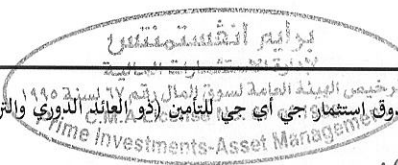 برايم انفستمنتس
لإدارة الاستثمارات المالية
ترخيص الهيئة العامة لسوق المال رقم ٦٧ لسنة ١٩٩٥
وق إستثمار جي أي جي للتأمين (ذو العائد الدوري والتر
C.M.A.
Prime Investments-Asset Management